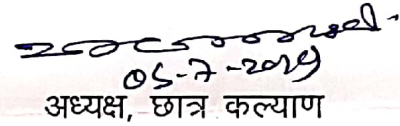 05-7-2019
अध्यक्ष, छात्र कल्याण